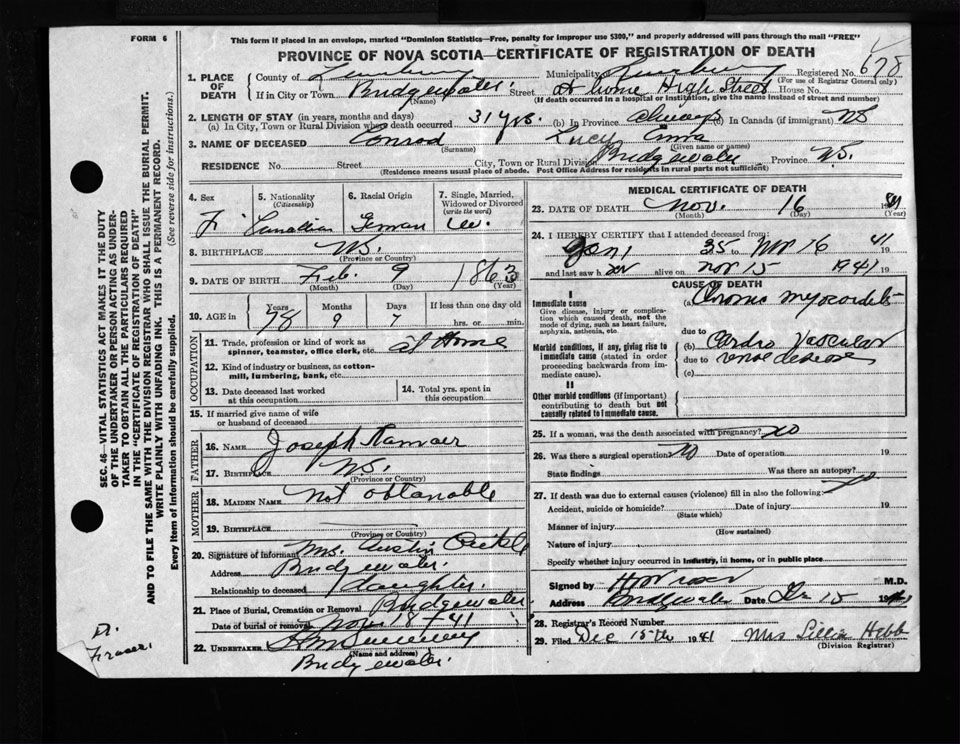 FORM 6
This form if placed in an envelope, marked "Dominion Statistics—Free, penalty for improper use $300," and properly addressed will pass through the mail "FREE"
PROVINCE OF NOVA SCOTIA—CERTIFICATE OF REGISTRATION OF DEATH
1. PLACE OF DEATH
County of Lunenburg Municipality Lunenburg Registered No. 678
(For use of Registrar General only)
If in City or Town Bridgewater Street At home High Street House No.
(Name) (If death occurred in a hospital or institution, give the name instead of street and number)
2. LENGTH OF STAY (in years, months and days)
(a) In City, Town or Rural Division where death occurred 31 yrs. (b) In Province always (c) In Canada (if immigrant) NS
3. NAME OF DECEASED Conrad Lucy Emma
(Surname) (Given name or names)
RESIDENCE No. Street City, Town or Rural Division Bridgewater Province N.S.
(Residence means usual place of abode. Post Office Address for residents in rural parts not sufficient)
4. Sex
F.
5. Nationality (Citizenship)
Canadian
6. Racial Origin
German
7. Single, Married, Widowed or Divorced (write the word)
W.
8. BIRTHPLACE N.S.
(Province or Country)
9. DATE OF BIRTH Feb. 9 1863
(Month) (Day) (Year)
10. AGE in Years Months Days If less than one day old
78 9 7 hrs. or min.
OCCUPATION
11. Trade, profession or kind of work as spinner, teamster, office clerk, etc. at Home
12. Kind of industry or business, as cotton-mill, lumbering, bank, etc.
13. Date deceased last worked at this occupation
14. Total yrs. spent in this occupation
15. If married give name of wife or husband of deceased
FATHER
16. NAME Joseph
17. BIRTHPLACE N.S.
(Province or Country)
MOTHER
18. MAIDEN NAME not obtanable
19. BIRTHPLACE
(Province or Country)
20. Signature of informant Mrs. Austin
Address Bridgewater.
Relationship to deceased daughter.
21. Place of Burial, Cremation or Removal Bridgewater
Date of burial or removal Nov 18 41
22. UNDERTAKER
(Name and address)
Bridgewater.
MEDICAL CERTIFICATE OF DEATH
23. DATE OF DEATH Nov. 16 1941
(Month) (Day) (Year)
24. I HEREBY CERTIFY that I attended deceased from:
Jan 1 35 to Nov 16 1941
and last saw her alive on Nov 15 1941 19
CAUSE OF DEATH
I
Immediate cause
Give disease, injury or complication which caused death, not the mode of dying, such as heart failure, asphyxia, asthenia, etc.
(a) Chronic myocarditis
due to
Morbid conditions, if any, giving rise to immediate cause (stated in order proceeding backwards from immediate cause).
(b) Cardio Vascular
due to renal disease
(c)
II
Other morbid conditions (if important) contributing to death but not causally related to immediate cause.
25. If a woman, was the death associated with pregnancy? no
26. Was there a surgical operation? no Date of operation 19
State findings Was there an autopsy? no
27. If death was due to external causes (violence) fill in also the following:
Accident, suicide or homicide? Date of injury 19
(State which)
Manner of injury
(How sustained)
Nature of injury
Specify whether injury occurred in industry, in home, or in public place
Signed by M.D.
Address Bridgewater Date Dec 15 1941
28. Registrar's Record Number
29. Filed Dec 15th 1941 Mrs Lillie Hebb
(Division Registrar)
SEC. 46—VITAL STATISTICS ACT MAKES IT THE DUTY
OF THE UNDERTAKER OR PERSON ACTING AS UNDER-
TAKER TO OBTAIN ALL THE PARTICULARS REQUIRED
IN THE "CERTIFICATE OF REGISTRATION OF DEATH"
AND TO FILE THE SAME WITH THE DIVISION REGISTRAR WHO SHALL ISSUE THE BURIAL PERMIT.
WRITE PLAINLY WITH UNFADING INK. THIS IS A PERMANENT RECORD.
Every item of information should be carefully supplied. (See reverse side for instructions.)
Dr.
Fraser.